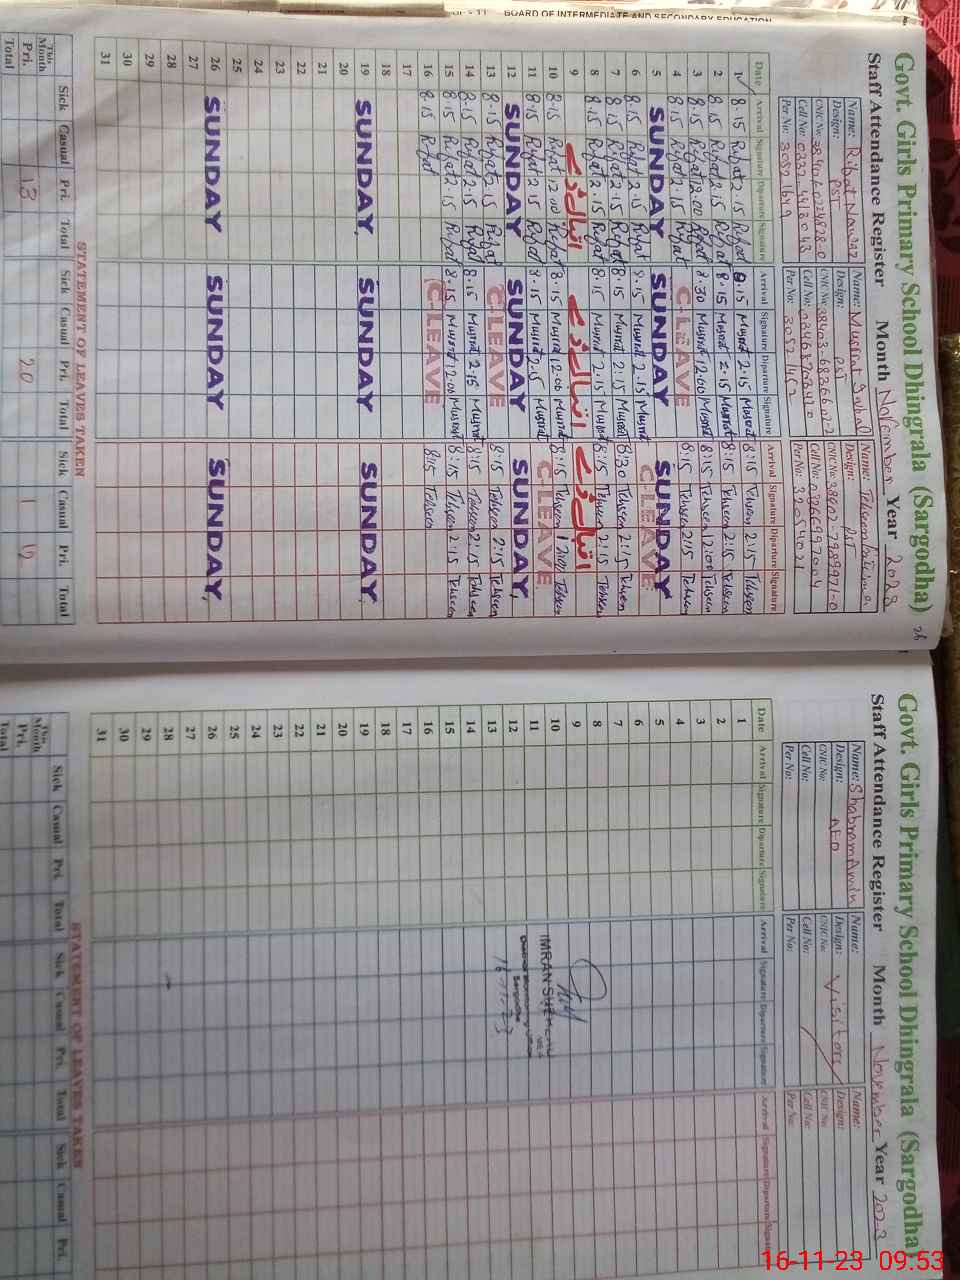 BOARD OF INTERMEDIATE AND SECONDARY EDUCATION
Govt. Girls Primary School Dhingrala (Sargodha)
Staff Attendance Register Month November Year 2023
Name: Rifat Nawaz Name: Musrat Iqbal Name: Tehseen Fatima
Design: PST Design: PST Design: PST
CNIC No: CNIC No: CNIC No:
Cell No: Cell No: Cell No:
Per No: Per No: Per No:
Date Arrival Signature Diparture Signature Arrival Signature Diparture Signature Arrival Signature Diparture Signature
1 8.15 Rifat 2.15 Rifat 8.15 Musrat 2.15 Musrat 8:15 Tehseen 2:15 Tehseen
2 8.15 Rifat 2.15 Rifat 8.15 Musrat 2.15 Musrat 8:15 Tehseen 2:15 Tehseen
3 8.15 Rifat 12.00 Rifat 8.30 Musrat 12.00 Musrat 8:15 Tehseen 12:00 Tehseen
4 8.15 Rifat 2.15 Rifat C-LEAVE 8:15 Tehseen 2:15 Tehseen
5 SUNDAY SUNDAY SUNDAY
6 8.15 Rifat 2.15 Rifat 8.15 Musrat 2.15 Musrat C-LEAVE
7 8.15 Rifat 2.15 Rifat 8.15 Musrat 2.15 Musrat 8:30 Tehseen 2:15 Tehseen
8 8.15 Rifat 2.15 Rifat 8.15 Musrat 2.15 Musrat 8:15 Tehseen 2:15 Tehseen
9 اقبال ڈے اقبال ڈے اقبال ڈے
10 8.15 Rifat 12.00 Rifat 8.15 Musrat 12.00 Musrat 8:15 Tehseen Tehseen
11 8.15 Rifat 2.15 Rifat 8.15 Musrat 2.15 Musrat C-LEAVE
12 SUNDAY SUNDAY SUNDAY
13 8.15 Rifat 2.15 Rifat C-LEAVE 8:15 Tehseen 2:15 Tehseen
14 8.15 Rifat 2.15 Rifat 8.15 Musrat 2.15 Musrat 8:15 Tehseen 2:15 Tehseen
15 8.15 Rifat 2.15 Rifat 8.15 Musrat 12.00 Musrat 8:15 Tehseen 2:15 Tehseen
16 8.15 Rifat C-LEAVE 8:15 Tehseen
17
18
19 SUNDAY SUNDAY SUNDAY
20
21
22
23
24
25
26 SUNDAY SUNDAY SUNDAY
27
28
29
30
31
STATEMENT OF LEAVES TAKEN
Sick Casual Pri. Total Sick Casual Pri. Total Sick Casual Pri. Total
This Month
Pri. 13 20 1 12
Total
Govt. Girls Primary School Dhingrala (Sargodha)
Staff Attendance Register Month November Year 2023
Name: Shabnam Amin Name: Name:
Design: AEO Design: Visitors Design:
CNIC No: CNIC No: CNIC No:
Cell No: Cell No: Cell No:
Per No: Per No: Per No:
Date Arrival Signature Diparture Signature Arrival Signature Diparture Signature Arrival Signature Diparture Signature
1
2
3
4
5
6
7
8
9
10
11 IMRAN
12
13 16-11-23
14
15
16
17
18
19
20
21
22
23
24
25
26
27
28
29
30
31
STATEMENT OF LEAVES TAKEN
Sick Casual Pri. Total Sick Casual Pri. Total Sick Casual Pri.
This Month
Pri.
Total
16-11-23 09:53